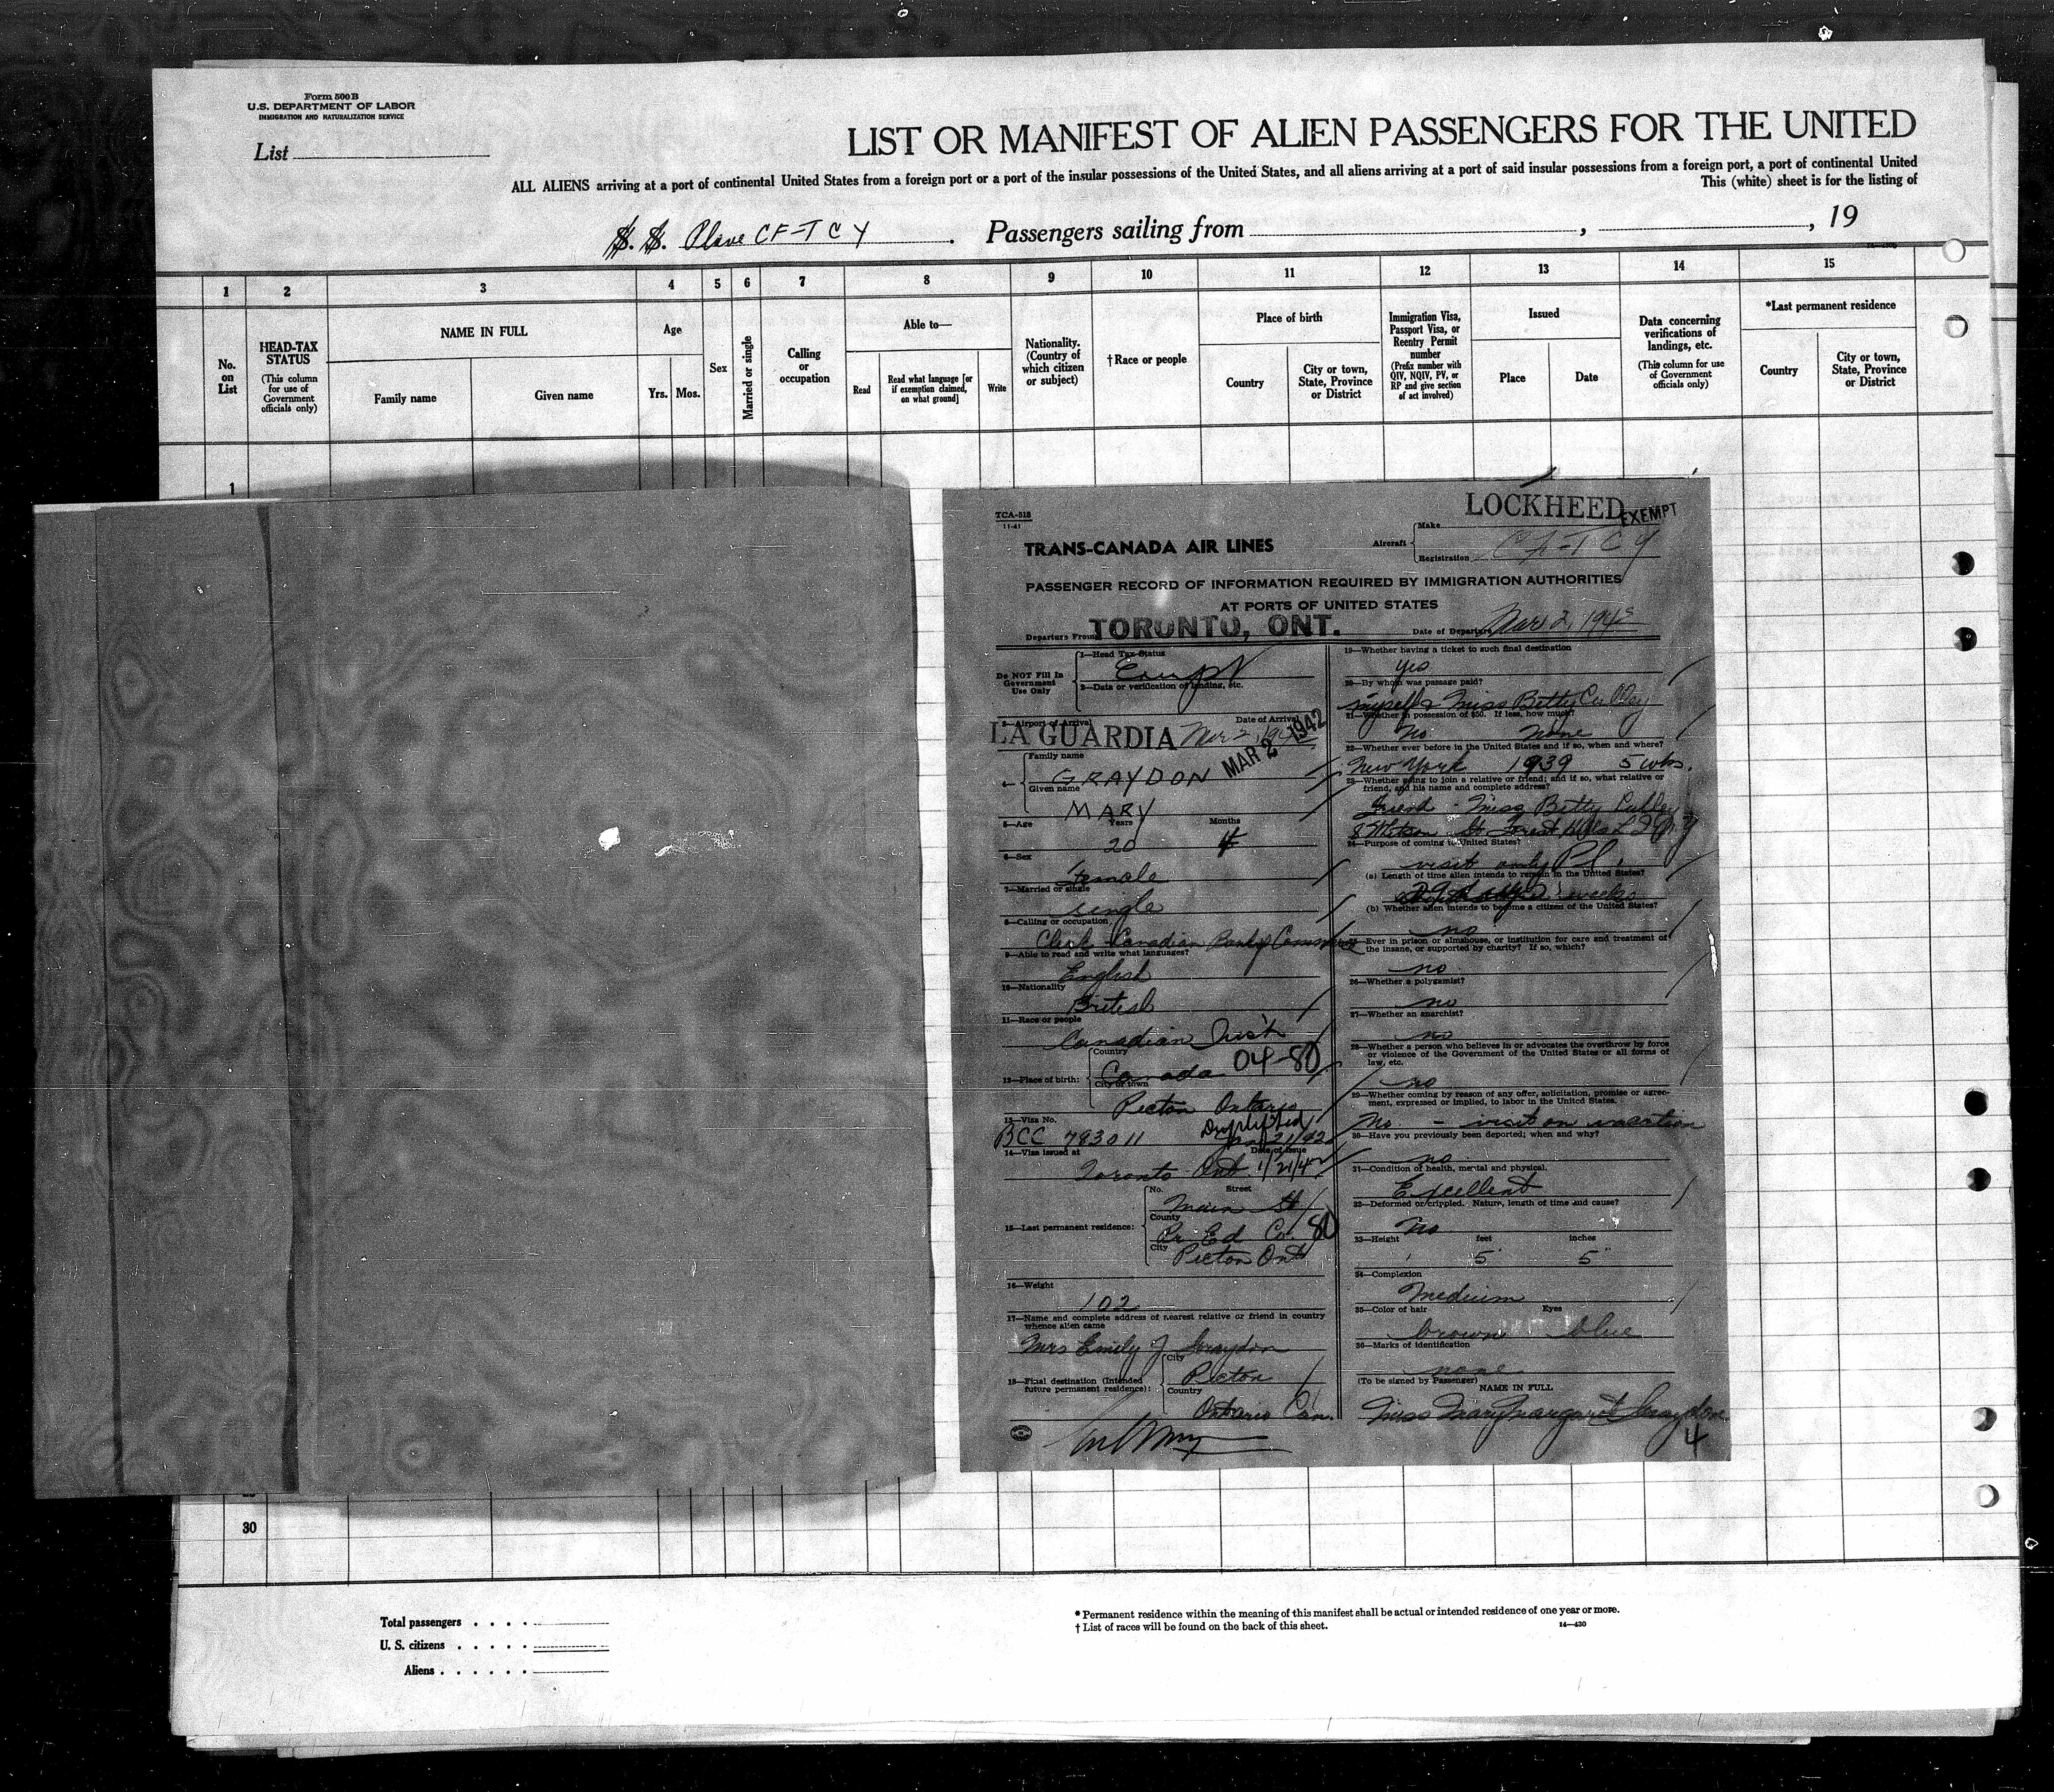 Form 500 B
U.S. DEPARTMENT OF LABOR
IMMIGRATION AND NATURALIZATION SERVICE
List
LIST OR MANIFEST OF ALIEN PASSENGERS FOR THE UNITED
ALL ALIENS arriving at a port of continental United States from a foreign port or a port of the insular possessions of the United States, and all aliens arriving at a port of said insular possessions from a foreign port, a port of continental United
This (white) sheet is for the listing of
S. S. Plane CF-TCY . Passengers sailing from , , 19
1 2 3 4 5 6 7 8 9 10 11 12 13 14 15
No. on List
HEAD-TAX STATUS
(This column for use of Government officials only)
NAME IN FULL
Family name
Given name
Age
Yrs. Mos.
Sex
Married or single
Calling or occupation
Able to—
Read
Read what language [or if exemption claimed, on what ground]
Write
Nationality. (Country of which citizen or subject)
† Race or people
Place of birth
Country
City or town, State, Province or District
Immigration Visa, Passport Visa, or Reentry Permit number
(Prefix number with QIV, NQIV, PV, or RP and give section of act involved)
Issued
Place
Date
Data concerning verifications of landings, etc.
(This column for use of Government officials only)
*Last permanent residence
Country
City or town, State, Province or District
1
TCA-518
11-41
LOCKHEED
EXEMPT
TRANS-CANADA AIR LINES
Aircraft
Make
Registration CF-TCY
PASSENGER RECORD OF INFORMATION REQUIRED BY IMMIGRATION AUTHORITIES
AT PORTS OF UNITED STATES
Departure From TORONTO, ONT.
Date of Departure Mar 2, 194
Do NOT Fill In Government Use Only
1—Head Tax Status
Exempt
2—Data or verification of landing, etc.
3—Airport of Arrival
Date of Arrival
LA GUARDIA Mar 2, 1942
MAR 2 1942
4—
Family name
GRAYDON
Given name
MARY
5—Age
Years
Months
20 4
6—Sex
Female
7—Married or single
single
8—Calling or occupation
Clerk - Canadian Bank of Commerce
9—Able to read and write what languages?
English
10—Nationality
British
11—Race or people
Canadian Irish
12—Place of birth:
Country
Canada 04-80
City or town
Picton Ontario
13—Visa No.
BCC 793011
Jan 21/42
14—Visa issued at
Date of Issue
Toronto Ont 1/21/42
15—Last permanent residence:
No. Street
Main St
County
Pr. Ed Co. 80
City
Picton Ont
16—Weight
102
17—Name and complete address of nearest relative or friend in country whence alien came
Mrs Emily J Graydon
18—Final destination (Intended future permanent residence):
City
Picton
Country
Ontario Can.
19—Whether having a ticket to such final destination
yes
20—By whom was passage paid?
myself & Miss Betty Culley
21—Whether in possession of $50. If less, how much?
No none
22—Whether ever before in the United States and if so, when and where?
New York 1939 5 wks.
23—Whether going to join a relative or friend; and if so, what relative or friend, and his name and complete address?
friend - Miss Betty Culley
St Forest Hills L I N Y
24—Purpose of coming to United States?
visit only
(a) Length of time alien intends to remain in the United States?
29 days
(b) Whether alien intends to become a citizen of the United States?
no
25—Ever in prison or almshouse, or institution for care and treatment of the insane, or supported by charity? If so, which?
no
26—Whether a polygamist?
no
27—Whether an anarchist?
no
28—Whether a person who believes in or advocates the overthrow by force or violence of the Government of the United States or all forms of law, etc.
no
29—Whether coming by reason of any offer, solicitation, promise or agreement, expressed or implied, to labor in the United States.
No. - visit on vacation
30—Have you previously been deported; when and why?
no
31—Condition of health, mental and physical.
Excellent
32—Deformed or crippled. Nature, length of time and cause?
No
33—Height feet inches
5' 5"
34—Complexion
Medium
35—Color of hair Eyes
brown blue
36—Marks of identification
none
(To be signed by Passenger)
NAME IN FULL
Miss Mary Margaret Graydon
4
30
Total passengers
U. S. citizens
Aliens
* Permanent residence within the meaning of this manifest shall be actual or intended residence of one year or more.
† List of races will be found on the back of this sheet.
14—430